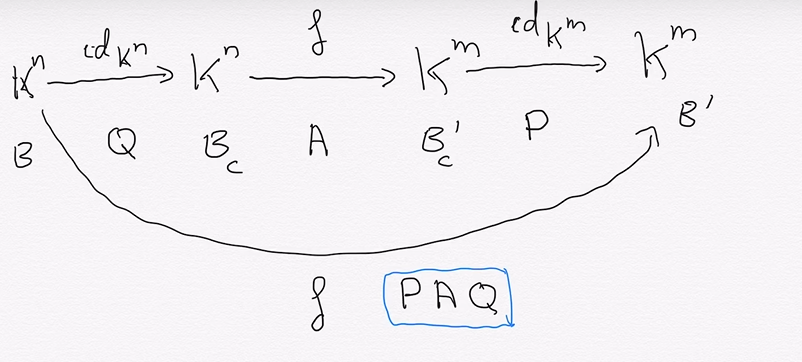 K^n id_{K^n} K^n f K^m id_{K^m} K^m
B Q B_c A B'_c P B'
f PAQ